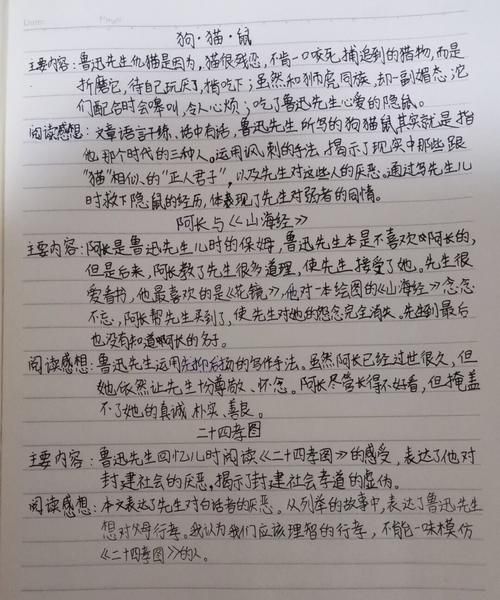 狗·猫·鼠
主要内容：鲁迅先生仇猫是因为，猫很残忍，不肯一口咬死捕追到的猎物，而是
折磨它，待自己玩厌了，摧吃下；虽然和狮虎同族，却一副媚态；它
们配合时会嗥叫，令人心烦；吃了鲁迅先生心爱的隐鼠。
阅读感想：文章语言干练、话中有话，鲁迅先生所写的狗猫鼠其实就是指
他那个时代的三种人。运用讽刺的手法，揭示了现实中那些跟
“猫”相似的“正人君子”，以及先生对这些人的厌恶。通过写先生儿
时救下隐鼠的经历，体表现了先生对弱者的同情。
阿长与《山海经》
主要内容：阿长是鲁迅先生儿时的保姆，鲁迅先生本是不喜欢阿长的，
但是后来，阿长教了先生很多道理，使先生接受了她。先生很
爱看书，他最喜欢的是《花镜》，他对一本绘图的《山海经》念念
不忘，阿长帮先生买到了，使先生对她的怨念完全消失。先生到最后
也没有知道阿长的名子。
阅读感想：鲁迅先生运用先抑后扬的写作手法。虽然阿长已经过世很久，但
她依然让先生十分尊敬、怀念。阿长尽管长得不好看，但掩盖
不了她的真诚、朴实、善良。
二十四孝图
主要内容：鲁迅先生回忆儿时阅读《二十四孝图》的感受，表达了他对
封建社会的厌恶，揭示了封建社会孝道的虚伪。
阅读感想：本文表达了先生对白话者的厌恶。从列举的故事中，表达了鲁迅先生
想对父母行孝。我认为我们应该理智的行孝，不能一味模仿
《二十四孝图》的人。